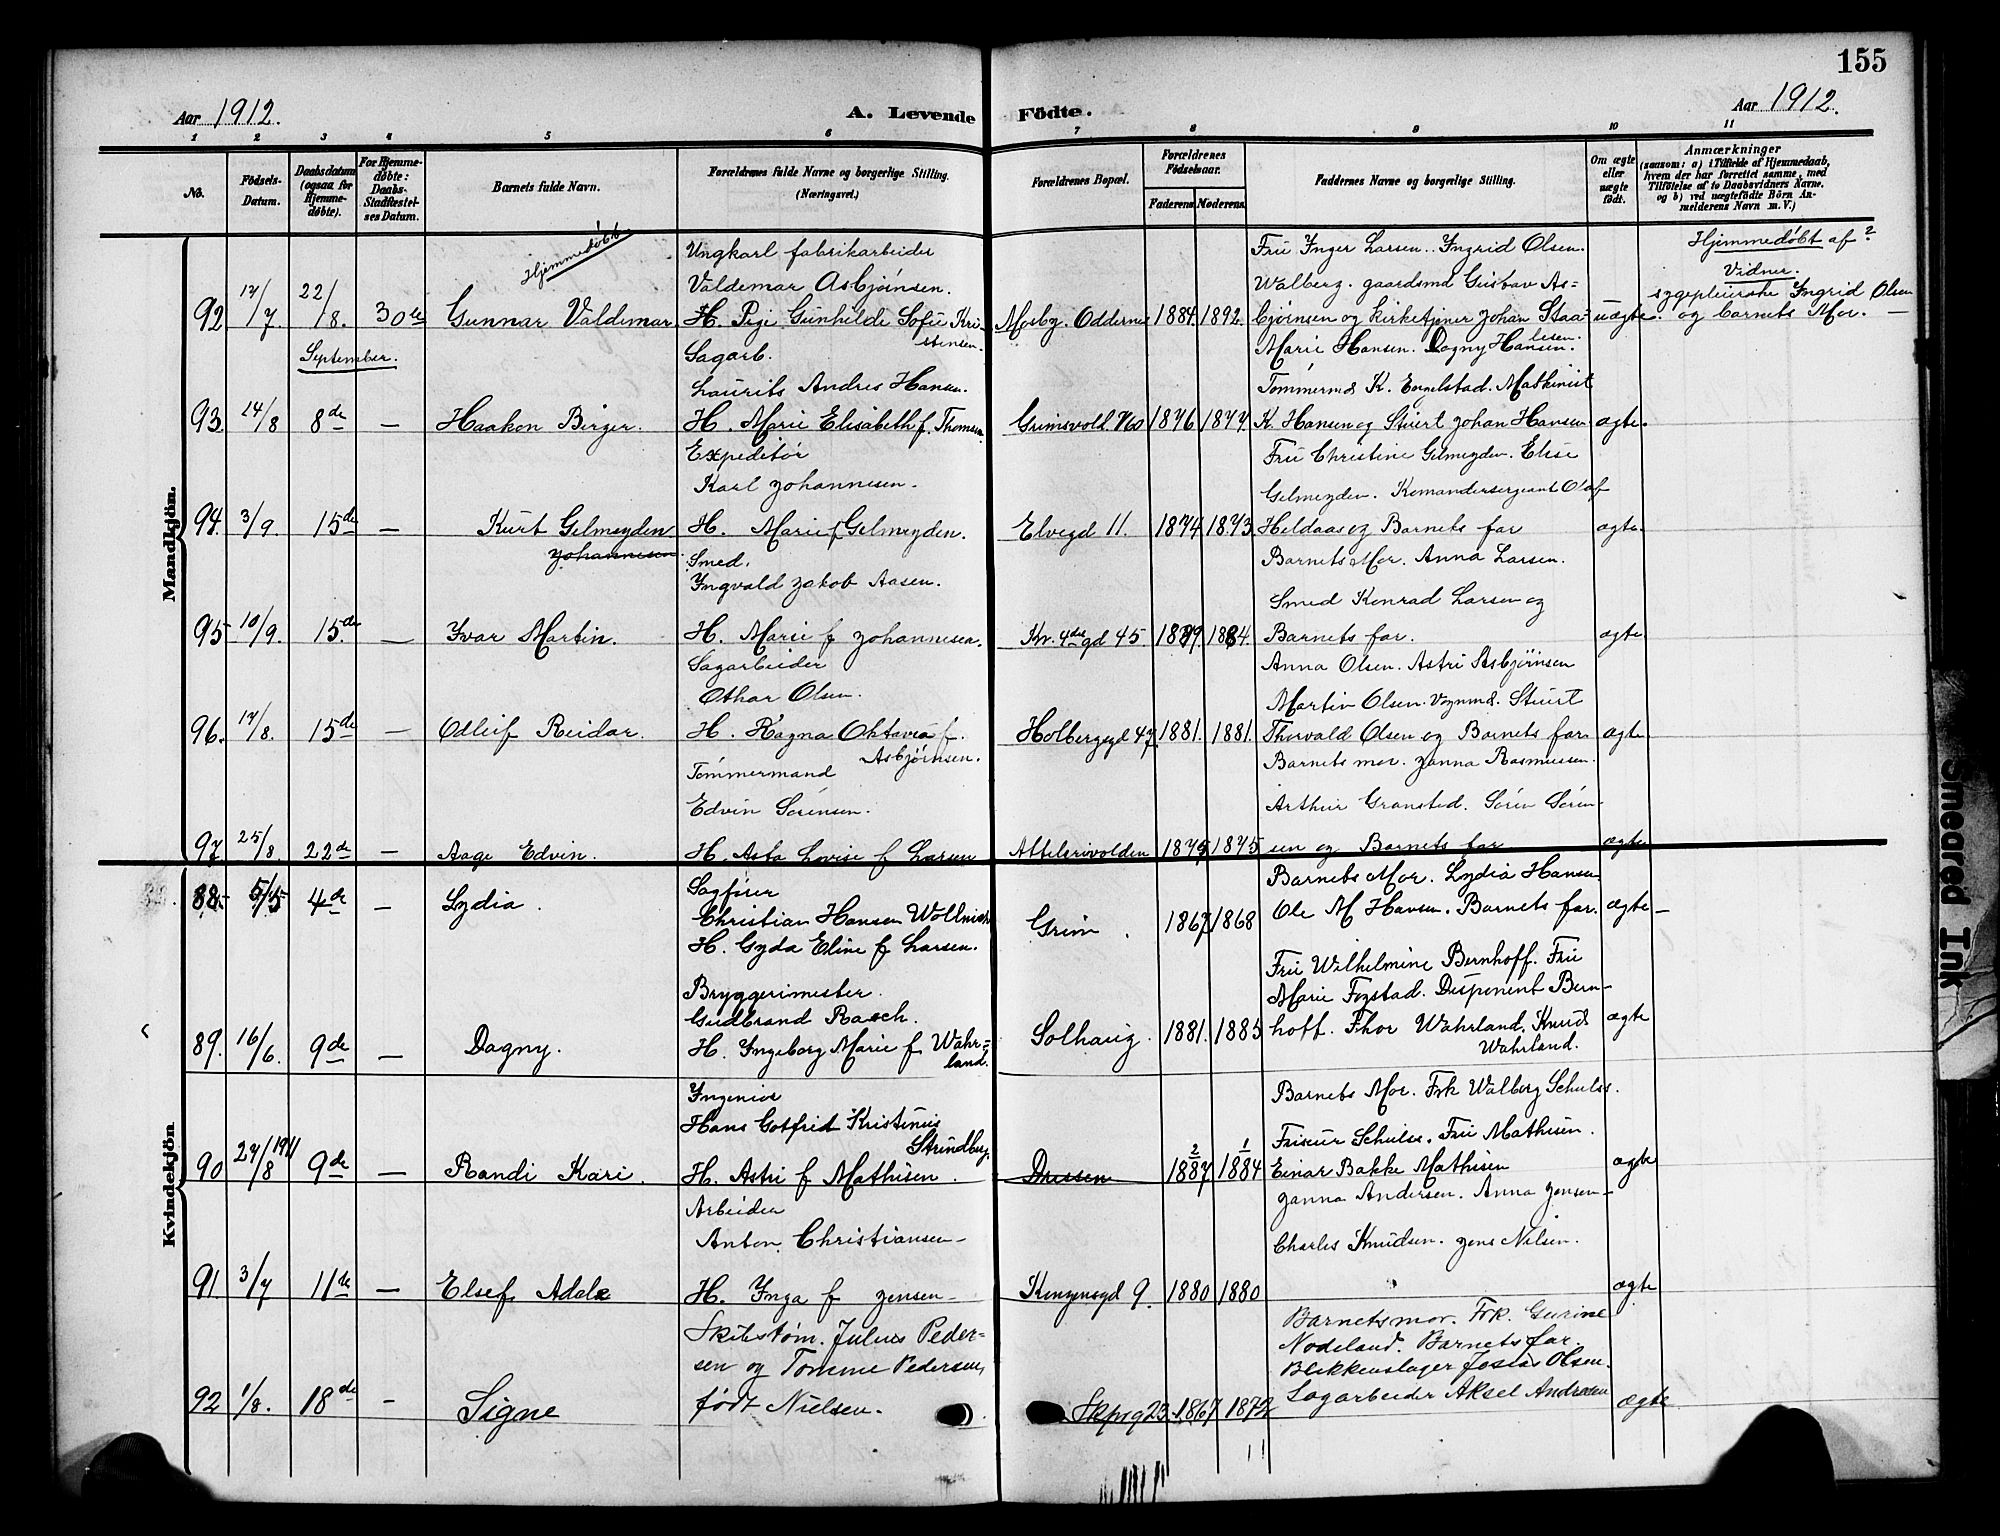 155
Aar 1912.
A. Levende Födte.
Aar 1912.
1 2 3 4 5 6 7 8 9 10 11
No.
Födsels-Datum.
Daabsdatum (ogsaa for Hjemme-døbte).
For Hjemme-døbte: Daabs-Stadfæstel-ses Datum.
Barnets fulde Navn.
Forældrenes fulde Navne og borgerlige Stilling. (Næringsvei.)
Forældrenes Bopæl.
Forældrenes Fødselsaar.
Faderens. Moderens.
Faddernes Navne og borgerlige Stilling.
Om ægte eller uægte födt.
Anmærkninger
(saasom: a) i Tilfælde af Hjemmedaab, hvem der har forrettet samme, med Tilföielse af to Daabsvidners Navne, og b) ved uægtefödte Börn An-melderens Navn m. V.)
Mandkjön.
Hjemmedøbt
Ungkarl fabrikarbeider
Valdemar Asbjørnsen.
92 17/7. 22/8. 30te Gunnar Valdemar H. Pige Gunhilde Sofie Kri-stensen. Mosby. Oddernes 1884. 1892.
Fru Inger Larsen. Ingrid Olsen.
Walberg. gaardsmd Gustav As=
bjørnsen og kirketjener Johan Staa=
lesen.
uægte.
Hjemmedøbt af ?
Vidner.
sygepleierske Ingrid Olsen
og barnets Mor. —
September.
Sagarb.
Laurits Andres Hansen.
93. 14/8 8de — Haakon Birger. H. Marie Elisabeth f. Thomsen Grimsvold. 1876 1877.
Marie Hansen. Dagny Hansen.
Tømmermd K. Engelstad. Maskinist
K. Hansen og Stuert Johan Hansen
ægte.
Expeditør
Karl Johannesen.
94. 3/9. 15de — Kurt Gelmeyden H. Marie f Gelmeyden. Elvegd 11. 1874 1873
Johannesen
Fru Christine Gelmeyden. Elise
Gelmeyden. Komandersergeant Olaf
Heldaas og Barnets far
ægte.
Smed.
Yngvald Jakob Aasen.
95 10/9. 15de — Ivar Martin. H. Marie f Johannesen. Kr. 4de gd 45. 1884.
Barnets Mor. Anna Larsen.
Smed Konrad Larsen og
Barnets far.
ægte
Sagarbeider
Othar Olsen.
96. 17/8. 15de — Odleif Reidar. H. Ragna Oktavia f. Asbjørnsen. Holbergsgd 47. 1881. 1881.
Anna Olsen. Astri Asbjørnsen
Martin Olsen. Vognmd. Stuert
Thorvald Olsen og Barnets far
ægte
Tømmermand
Edvin Sørensen.
97 25/8. 22de — Aage Edvin. H. Asta Lovise f Larsen 1875 1875
Barnets mor. Janna Rasmussen.
Arthur Gransted. Søren Søren-
sen og Barnets far
ægte
Kvindekjön
Sagfører
88. 5/5 4de — Lydia. Christian Hansen
H. Gyda Eline f Larsen.
Grim. 1867 1868
Barnets Mor. Lydia Hansen
Ole M Hansen. Barnets far.
ægte —
Bryggerimester.
Gudbrand Rasch.
89. 16/6. 9de — Dagny. H. Ingeborg Marie f Wahr=land. Solhaug. 1881. 1885
Fru Wilhelmine Bernhoff. Fru
Marie Fogstad. Disponent Bern-
hoff. Thor Wahrland. Knud
Wahrland.
ægte
Ingeniør
Hans Gotfrid Kristinus
Strindberg.
90 27/8 1911 9de — Randi Kari. H. Astri f Mathisen. 2/1887 1/1884
Barnets Mor. Frk Walborg Schulss.
Frisør Schulss. Fru Mathisen.
Einar Bakke Mathisen
ægte
Arbeider
Anton Christiansen
91 3/7 11te — Elsef Adele H. Inga f Jensen Kongensgd 9. 1880 1880
Janna Andersen. Anna Jensen
Charles Knudsen. Jens Nilsen.
ægte
Skibstøm. Julius Peder=
sen og Tomine Pedersen,
92 1/8. 18de — Signe født Nielsen. 23. 1867 1872
Barnets mor. Frk. Gurine
Nodeland. Barnets far.
Blikkenslager Josias Olsen.
Sagarbeider Aksel Andresen
ægte
Smeared Ink